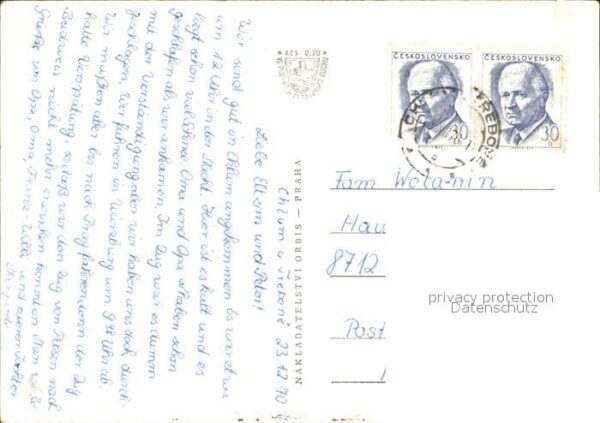 Chlum u Třeboně 23.12.70
Liebe Eltern und Peter!
Wir sind gut in Chlum angekommen. Es war etwa
um 12 Uhr in der Nacht. Hier ist es kalt und es
liegt schon viel Schnee. Oma und Opa haben schon
geschlafen als wir ankamen. Im Zug war es dumm
mit der Verständigung aber wir haben uns doch durch-
geschlagen. Wir fuhren in Würzburg um 9 Uhr ab.
Wir mußten aber bis nach Prag fahren, denn der Zug
hatte Verspätung, so daß wir den Zug von Pilsen nach
Budweis nicht mehr erreichen konnten. Nun viele
Grüße von Opa, Oma, Franz, Willi und eueren Töchter
NAKLADATELSTVÍ ORBIS — PRAHA
KČS 0,20
ČESKOSLOVENSKO
30 h
ČESKOSLOVENSKO
30 h
Fam Wolanin
Hau
8712
Post
privacy protection
Datenschutz